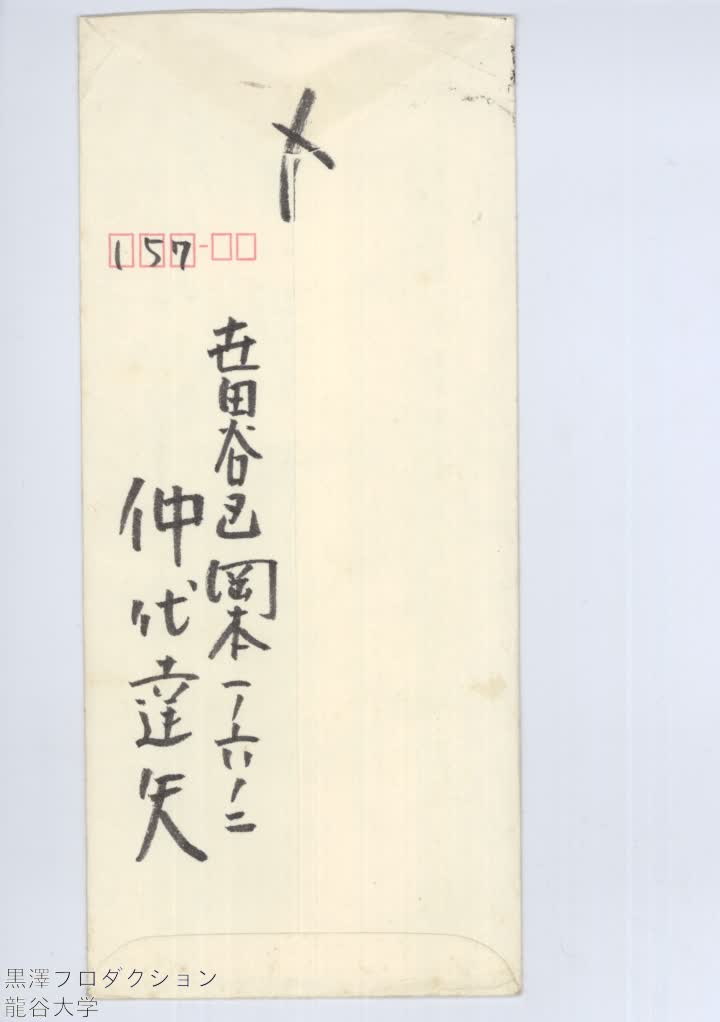 〆
157
世田谷区岡本一ノ六ノ二
仲代達矢
黒澤プロダクション
龍谷大学